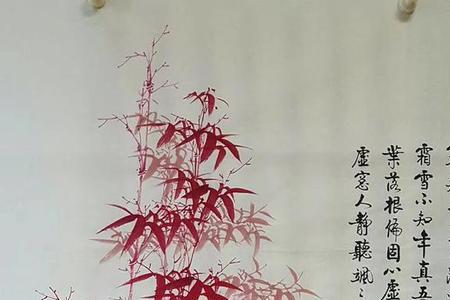 霜雪不知年真五
葉落根偏固心虛
虛窓人靜聽颯〻